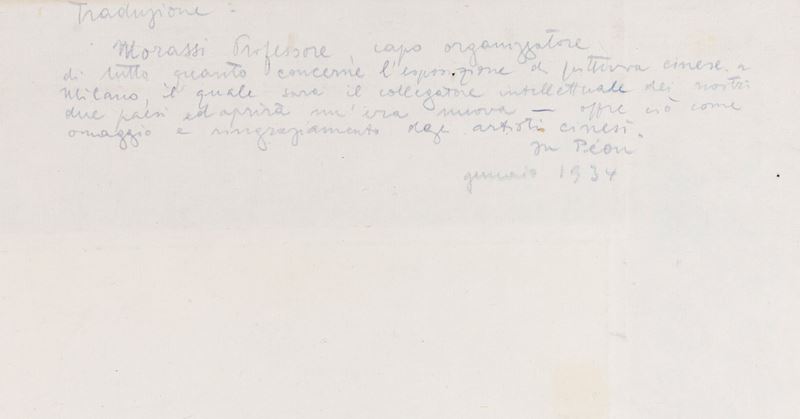 Traduzione :
Morassi Professore, capo organizzatore
di tutto quanto concerne l'esposizione di pittura cinese a
Milano, il quale sarà il collegatore intellettuale dei nostri
due paesi ed aprirà un'era nuova — offre ciò come
omaggio e ringraziamento degli artisti cinesi.
Ju Péon
gennaio 1934